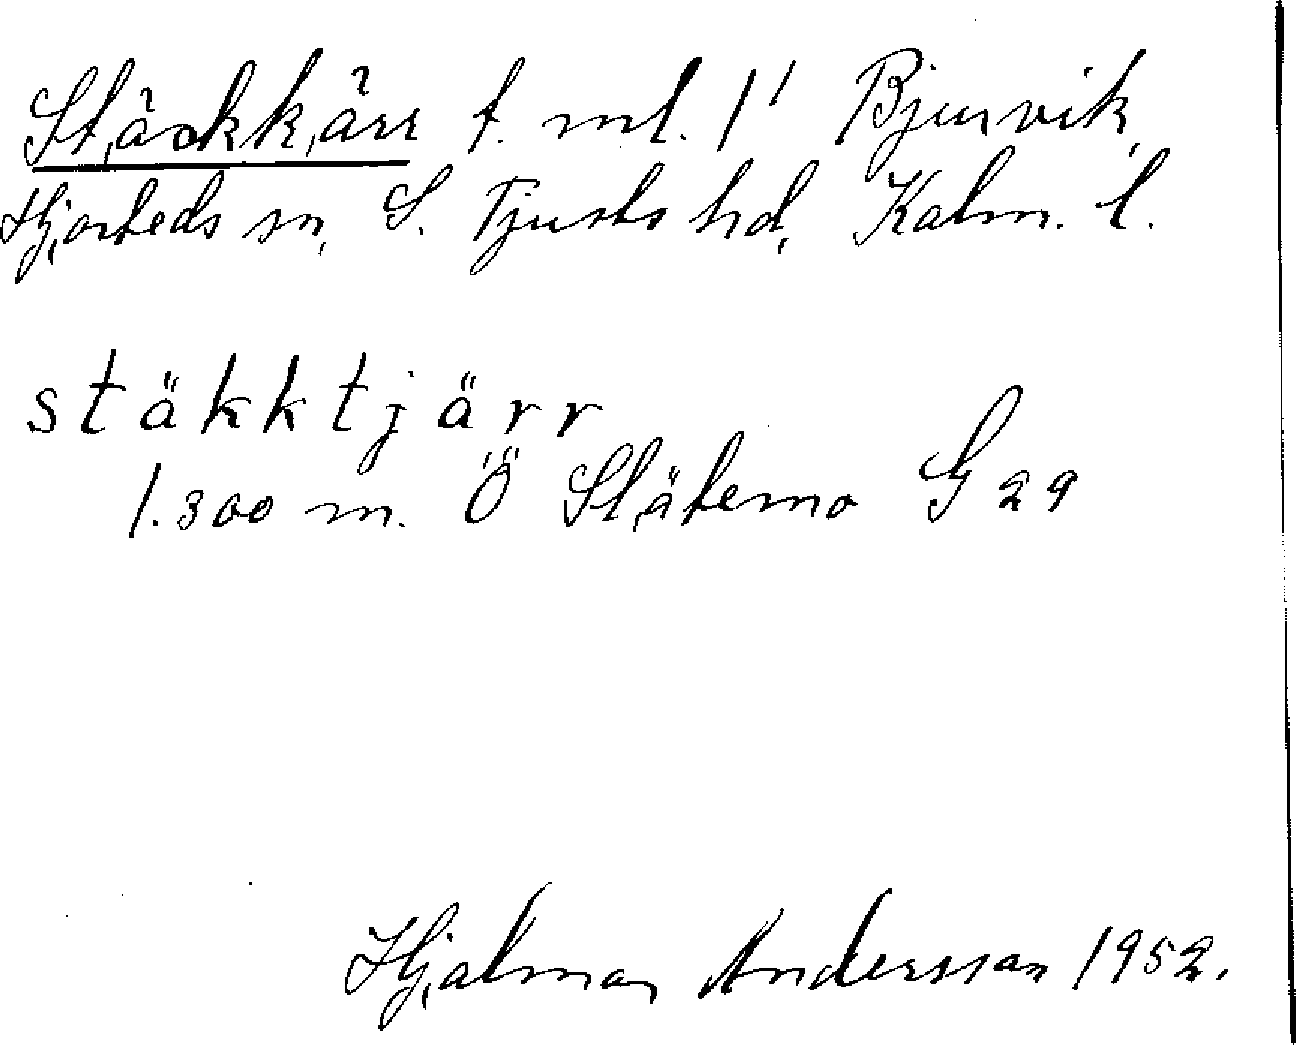 Stäckkärr t. ml. 1' Bjurvik,
Hjorteds sn, S. Tjusts hd, Kalm. l.
stäkktjärr
1.300 m. Ö Stätemo G 29
Hjalmar Andersson 1952.